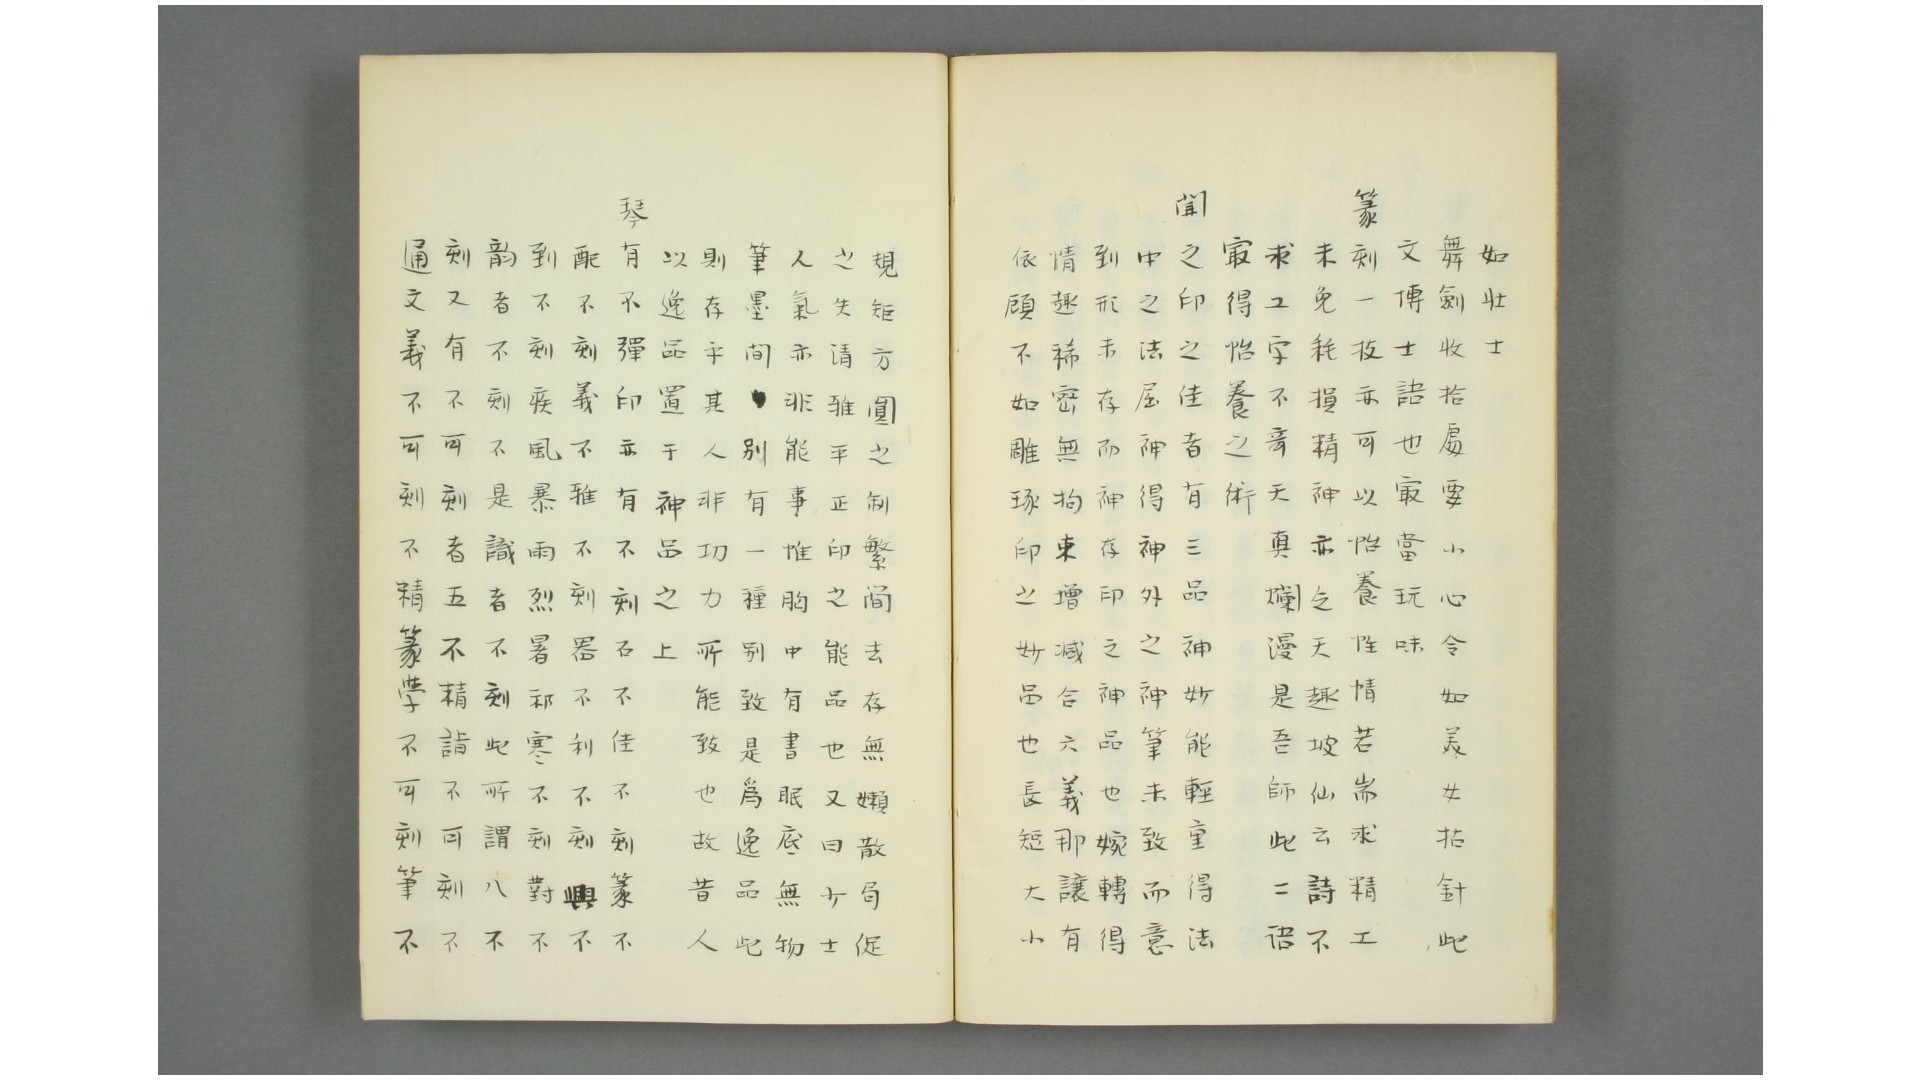 如壯士
舞劍收拾處要小心令如美女拈針此
文博士語也冣當玩味
篆刻一技亦可以怡養性情若耑求精工
未免耗損精神亦乏天趣坡仙云詩不
求工字不奇天真爛漫是吾師此二語
冣得怡養之術
聞之印之佳者有三品神妙能輕重得法
中之法屈神得神外之神筆未致而意
到形未存而神存印之神品也婉轉得
情趣稀密無拘束增減合六義那讓有
依顧不如雕琢印之妙品也長短大小
規矩方圓之制繁簡去存無嬾散局促
之失清雅平正印之能品也又曰少士
人氣亦非能事惟胸中有書眠底無物
筆墨間別有一種別致是爲逸品此
則存乎其人非功力所能致也故昔人
以逸品置于神品之上
琴有不彈印亦有不刻石不佳不刻篆不
配不刻義不雅不刻器不利不刻興不
到不刻疾風暴雨烈暑祁寒不刻對不
韵者不刻不是識者不刻此所謂八不
刻又有不可刻者五不精詣不可刻不
通文義不可刻不精篆學不可刻筆不